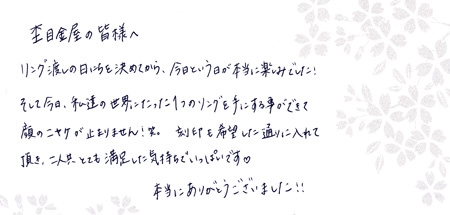 杢目金屋の皆様へ
リング渡しの日にちを決めてから、今日という日が本当に楽しみでした!
そして今日、私達の世界にたった1つのリングを手にする事ができて
顔のニヤケが止まりません!笑。 刻印も希望した通りに入れて
頂き、二人共とても満足した気持ちでいっぱいです♡
本当にありがとうございました!!